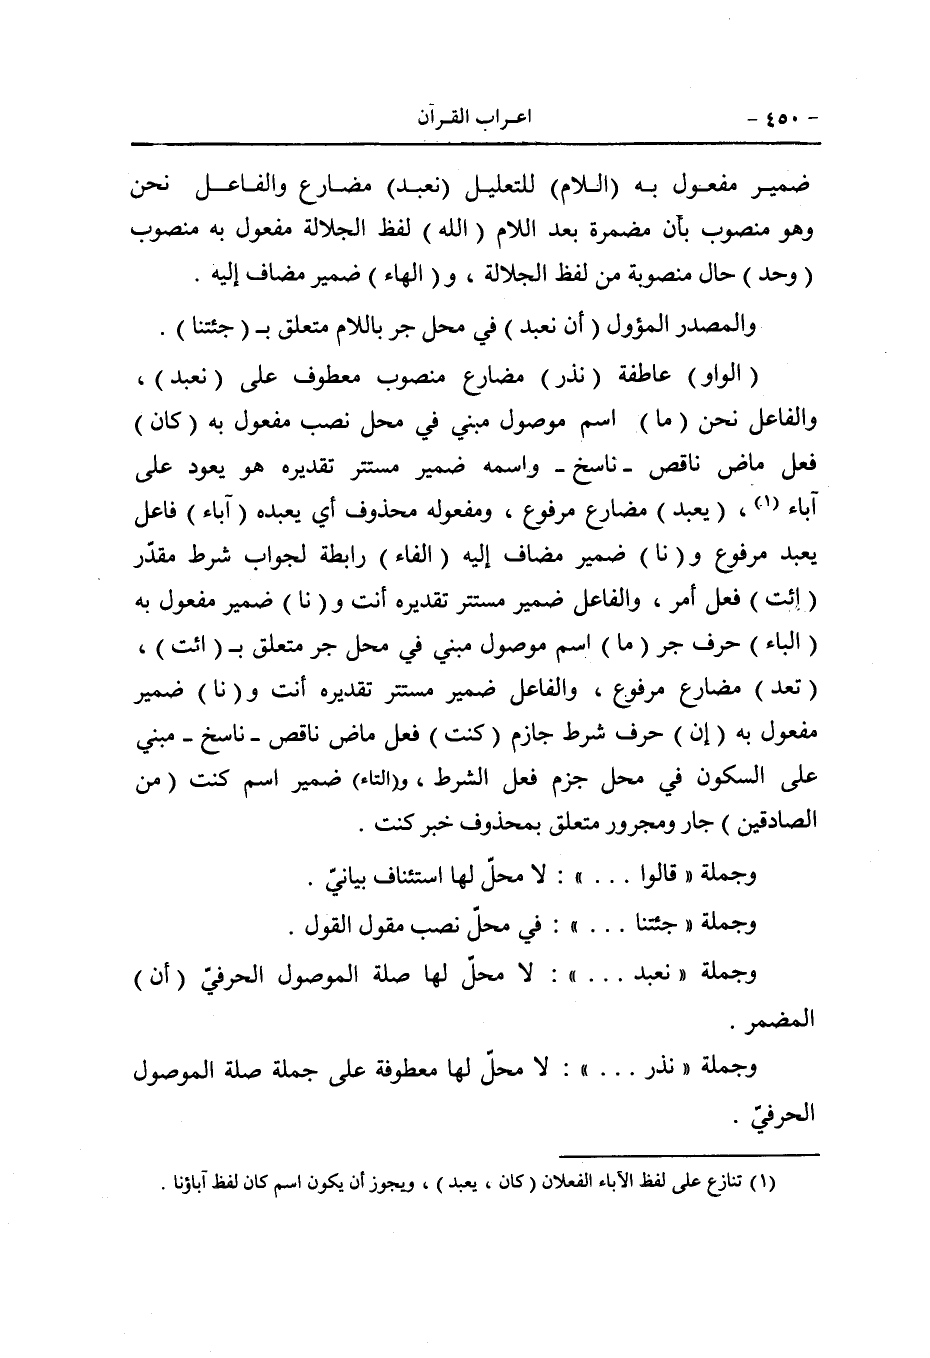 - ٤٥٠ -
اعراب القرآن
ضمير مفعول به (اللام) للتعليل (نعبد) مضارع والفاعل نحن
وهو منصوب بأن مضمرة بعد اللام ( الله ) لفظ الجلالة مفعول به منصوب
( وحد ) حال منصوبة من لفظ الجلالة ، و( الهاء ) ضمير مضاف إليه .
والمصدر المؤول ( أن نعبد ) في محل جر باللام متعلق بـ ( جئتنا ) .
( الواو ) عاطفة ( نذر ) مضارع منصوب معطوف على ( نعبد ) ،
والفاعل نحن ( ما ) اسم موصول مبني في محل نصب مفعول به ( كان )
فعل ماض ناقص ـ ناسخ ـ واسمه ضمير مستتر تقديره هو يعود على
آباء (١) ، ( يعبد ) مضارع مرفوع ، ومفعوله محذوف أي يعبده ( آباء ) فاعل
يعبد مرفوع و( نا ) ضمير مضاف إليه ( الفاء ) رابطة لجواب شرط مقدّر
( إئت ) فعل أمر ، والفاعل ضمير مستتر تقديره أنت و( نا ) ضمير مفعول به
( الباء ) حرف جر ( ما ) اسم موصول مبني في محل جر متعلق بـ ( ائت ) ،
( تعد ) مضارع مرفوع ، والفاعل ضمير مستتر تقديره أنت و( نا ) ضمير
مفعول به ( إن ) حرف شرط جازم ( كنت ) فعل ماض ناقص ـ ناسخ ـ مبني
على السكون في محل جزم فعل الشرط ، و(التاء) ضمير اسم كنت ( من
الصادقين ) جار ومجرور متعلق بمحذوف خبر كنت .
وجملة « قالوا . . . » : لا محلّ لها استئناف بيانيّ .
وجملة « جئتنا . . . » : في محلّ نصب مقول القول .
وجملة « نعبد . . . » : لا محلّ لها صلة الموصول الحرفيّ ( أن )
المضمر .
وجملة « نذر . . . » : لا محلّ لها معطوفة على جملة صلة الموصول
الحرفيّ .
(١) تنازع على لفظ الآباء الفعلان ( كان ، يعبد ) ، ويجوز أن يكون اسم كان لفظ آباؤنا .